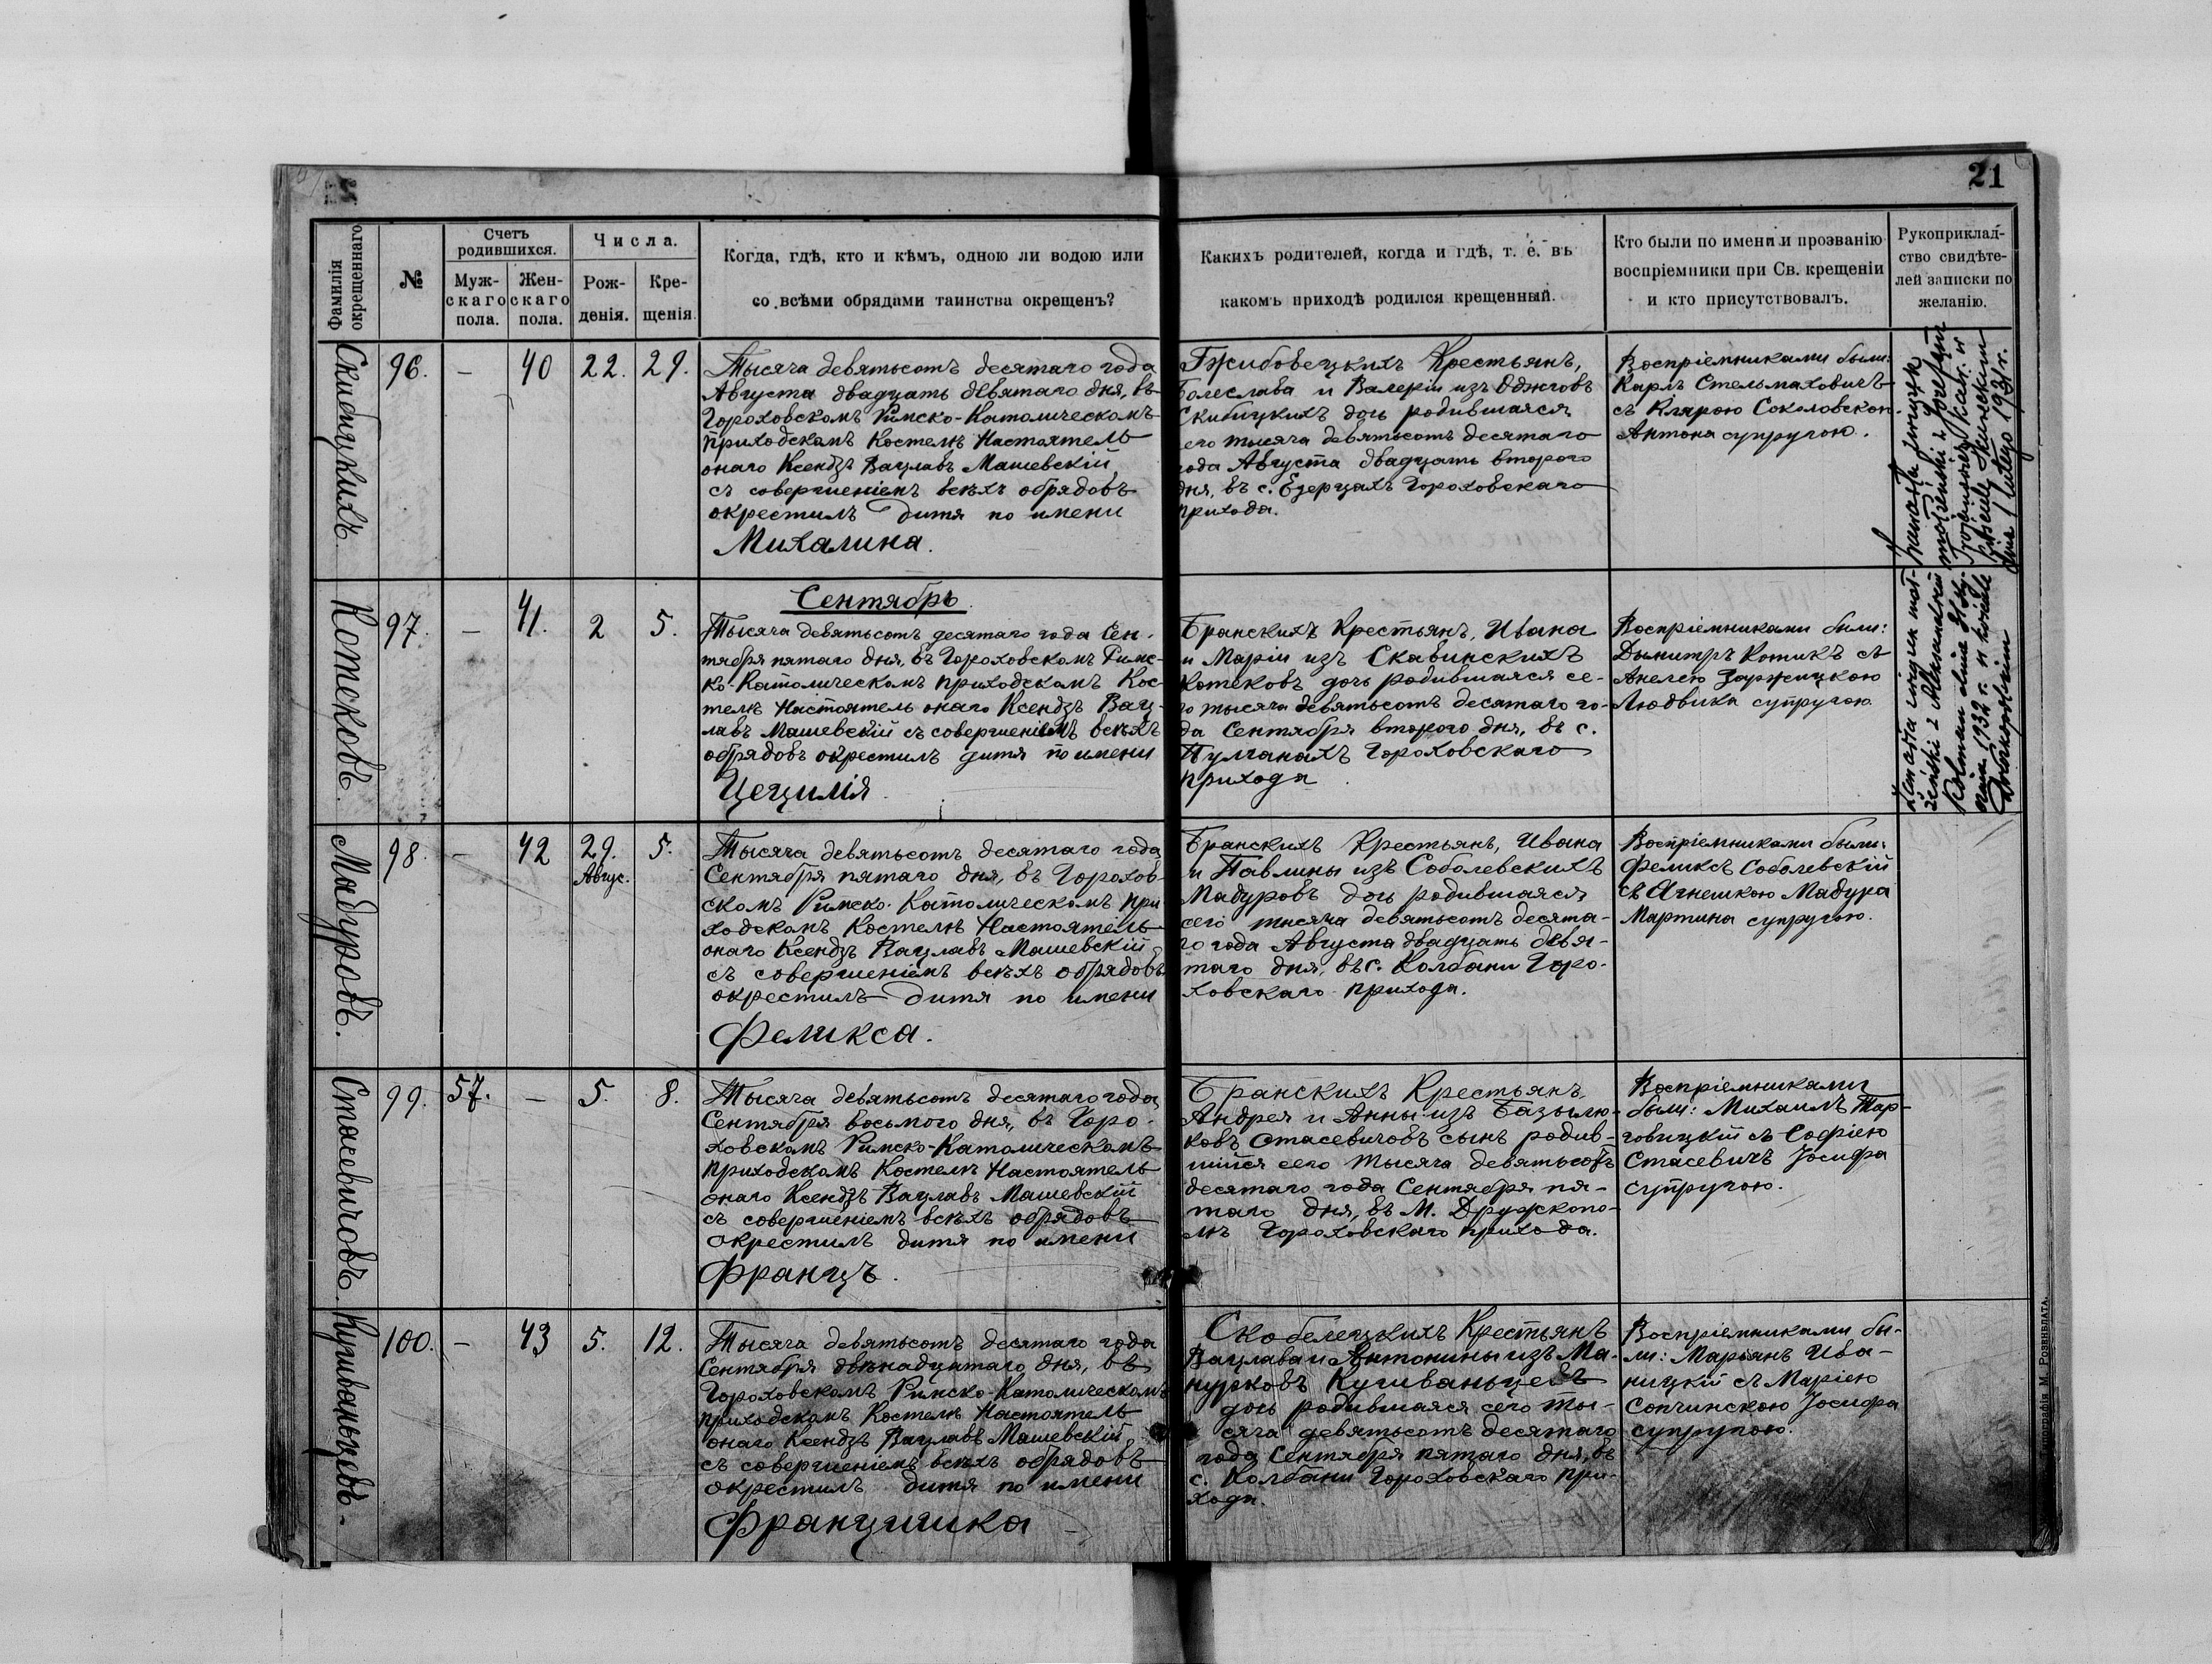 21
Фамилія окрещеннаго
№
Счетъ родившихся.
Муж-скаго пола.
Жен-скаго пола.
Числа.
Рож-денія.
Кре-щенія.
Когда, гдѣ, кто и кѣмъ, одною ли водою или
со всѣми обрядами таинства окрещенъ?
Какихъ родителей, когда и гдѣ, т. е. въ
какомъ приходѣ родился крещенный.
Кто были по имени и прозванію
воспріемники при Св. крещеніи
и кто присутствовалъ.
Рукоприклад-
ство свидѣте-
лей записки по
желанію.
Скибицкихъ.
96. — 40 22. 29.
Тысяча девятьсотъ десятаго года
Августа двадцать девятаго дня, въ
Гороховскомъ Римско-Католическомъ
приходскомъ Костелѣ Настоятель
онаго Ксендзъ Вацлавъ Машевскій
съ совершеніемъ всѣхъ обрядовъ
окрестилъ дитя по имени
Михалина.
Гжибовецкихъ Крестьянъ,
Болеслава и Валеріи изъ Оджговъ
Скибицкихъ дочь родившаяся
сего тысяча девятьсотъ десятаго
года Августа двадцать второго
дня, въ с. Езерцахъ Гороховскаго
прихода.
Воспріемниками были:
Карлъ Стельмаховичъ
съ Клярою Соколовскою
Антона супругою.
Котековъ.
97. — 41. 2 5.
Сентябрь.
Тысяча девятьсотъ десятаго года Сен-
тября пятаго дня, въ Гороховскомъ Римс-
ко-Католическомъ приходскомъ Кос-
телѣ Настоятель онаго Ксендзъ Вац-
лавъ Машевскій съ совершеніемъ всѣхъ
обрядовъ окрестилъ дитя по имени
Цецилія
Бранскихъ Крестьянъ, Ивана
и Маріи изъ Скавинскихъ
Котековъ дочь родившаяся се-
го тысяча девятьсотъ десятаго го-
да Сентября второго дня, въ с.
Пулганахъ Гороховскаго
прихода
Воспріемниками были:
Дымитръ Котикъ съ
Анелею Заржицкою
Людвика супругою
1932 r.
dnia 1 lutego 1931 r.
Мадуровъ.
98. — 42 29. Авгус. 5.
Тысяча девятьсотъ десятаго года
Сентября пятаго дня, въ Горохов-
скомъ Римско-Католическомъ при-
ходскомъ Костелѣ Настоятель
онаго Ксендзъ Вацлавъ Машевскій
съ совершеніемъ всѣхъ обрядовъ
окрестилъ дитя по имени
Феликса.
Бранскихъ Крестьянъ, Ивана
и Павлины изъ Соболевскихъ
Мадуровъ дочь родившаяся
сего тысяча девятьсотъ десята-
го года Августа двадцать девя-
таго дня, въ с. Колбани Горо-
ховскаго прихода.
Воспріемниками были:
Феликсъ Соболевскій
съ Агнешкою Мадура
Мартина супругою.
Стасевичовъ.
99. 57. — 5. 8.
Тысяча девятьсотъ десятаго года
Сентября восьмого дня, въ Горо-
ховскомъ Римско-Католическомъ
приходскомъ Костелѣ Настоятель
онаго Ксендзъ Вацлавъ Машевскій
съ совершеніемъ всѣхъ обрядовъ
окрестилъ дитя по имени
Францъ.
Бранскихъ Крестьянъ
Андрея и Анны изъ Базылю-
ковъ Стасевичовъ сынъ родив-
шійся сего тысяча девятьсотъ
десятаго года Сентября пя-
таго дня, въ М. Дружкопо-
лѣ Гороховскаго прихода.
Воспріемниками
были: Михаилъ Тар-
говицкій съ Софіею
Стасевичъ Іосифа
супругою.
Кушиваньцевъ.
100. — 43 5. 12.
Тысяча девятьсотъ десятаго года
Сентября двѣнадцатаго дня, въ
Гороховскомъ Римско-Католическомъ
приходскомъ Костелѣ Настоятель
онаго Ксендзъ Вацлавъ Машевскій
съ совершеніемъ всѣхъ обрядовъ
окрестилъ дитя по имени
Францишка
Скобелецкихъ Крестьянъ
Вацлава и Антонины изъ Ма-
нурковъ Кушиваньцевъ
дочь родившаяся сего ты-
сяча девятьсотъ десятаго
года Сентября пятаго дня, въ
с. Колбани Гороховскаго при-
хода.
Воспріемниками бы-
ли: Марьянъ Ива-
ницкій съ Маріею
Сопчинскою Іосифа
супругою.
Типографія М. Розенблата.